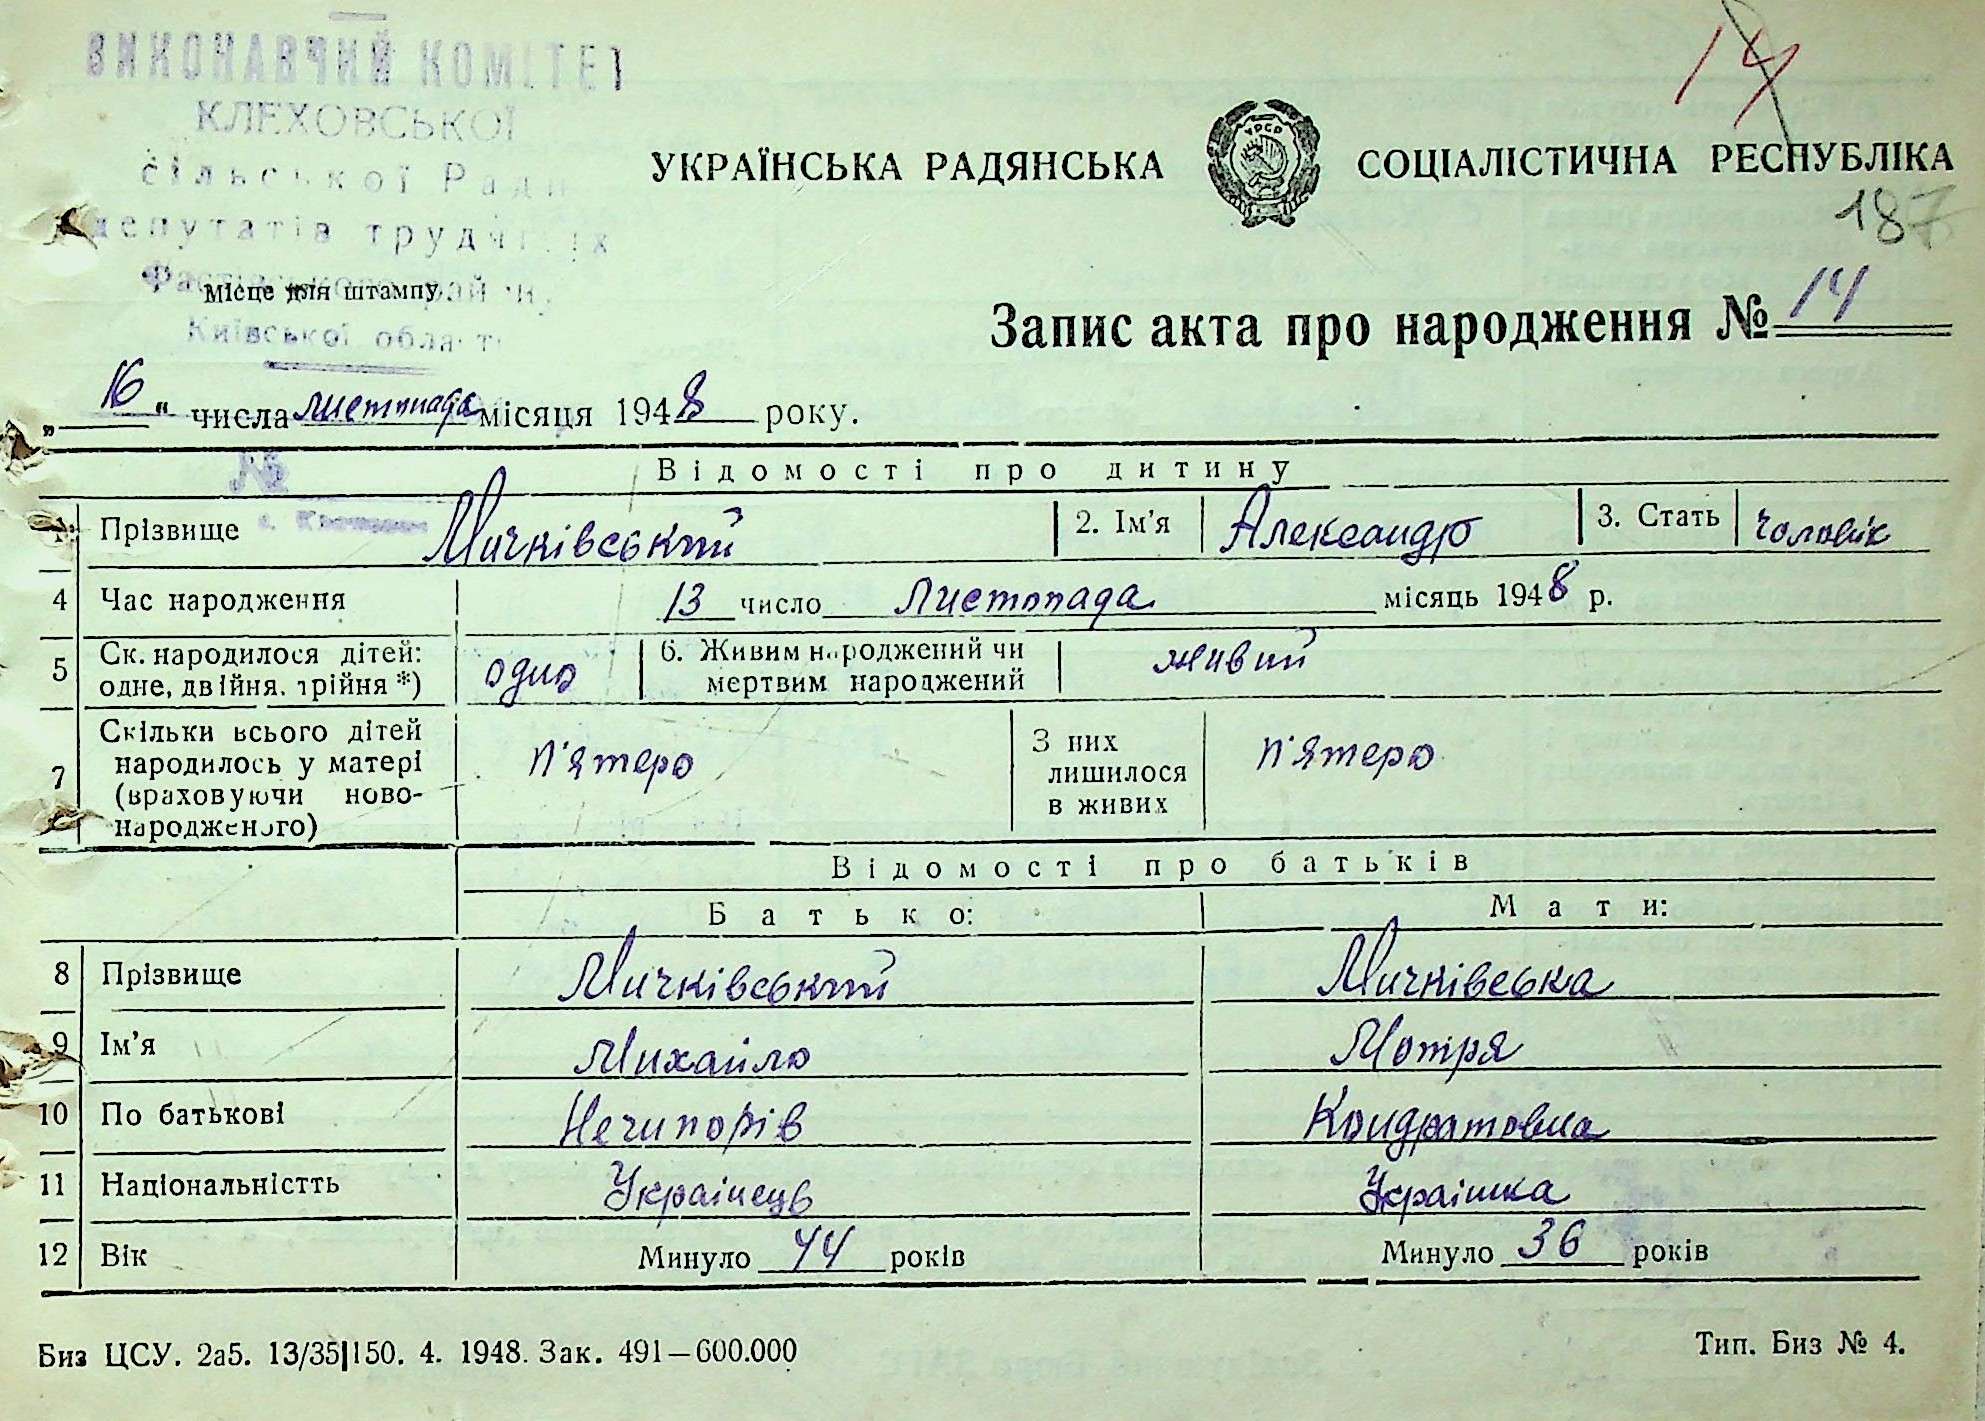 ВИКОНАВЧИЙ КОМІТЕТ
КЛЕХОВСЬКОЇ
сільської Ради
депутатів трудящих
Місце для штампу
Київської області
14
УКРАЇНСЬКА РАДЯНСЬКА СОЦІАЛІСТИЧНА РЕСПУБЛІКА
187
Запис акта про народження № 14
„16" числа листопада місяця 1948 року.
№
Відомості про дитину
1. Прізвище Мичківський 2. Ім'я Александр 3. Стать чоловік
4 Час народження 13 число Листопада місяць 1948 р.
5 Ск. народилося дітей: одне, двійня, трійня *) одно 6. Живим народжений чи мертвим народжений живий
7 Скільки всього дітей народилось у матері (враховуючи ново-народженого) п'ятеро З них лишилося в живих п'ятеро
Відомості про батьків
Батько: Мати:
8 Прізвище Мичківський Мичківська
9 Ім'я Михайло Мотря
10 По батькові Нечипорів Кондратовна
11 Національністть Українець Українка
12 Вік Минуло 44 років Минуло 36 років
Биз ЦСУ. 2а5. 13/35|150. 4. 1948. Зак. 491—600.000 Тип. Биз № 4.